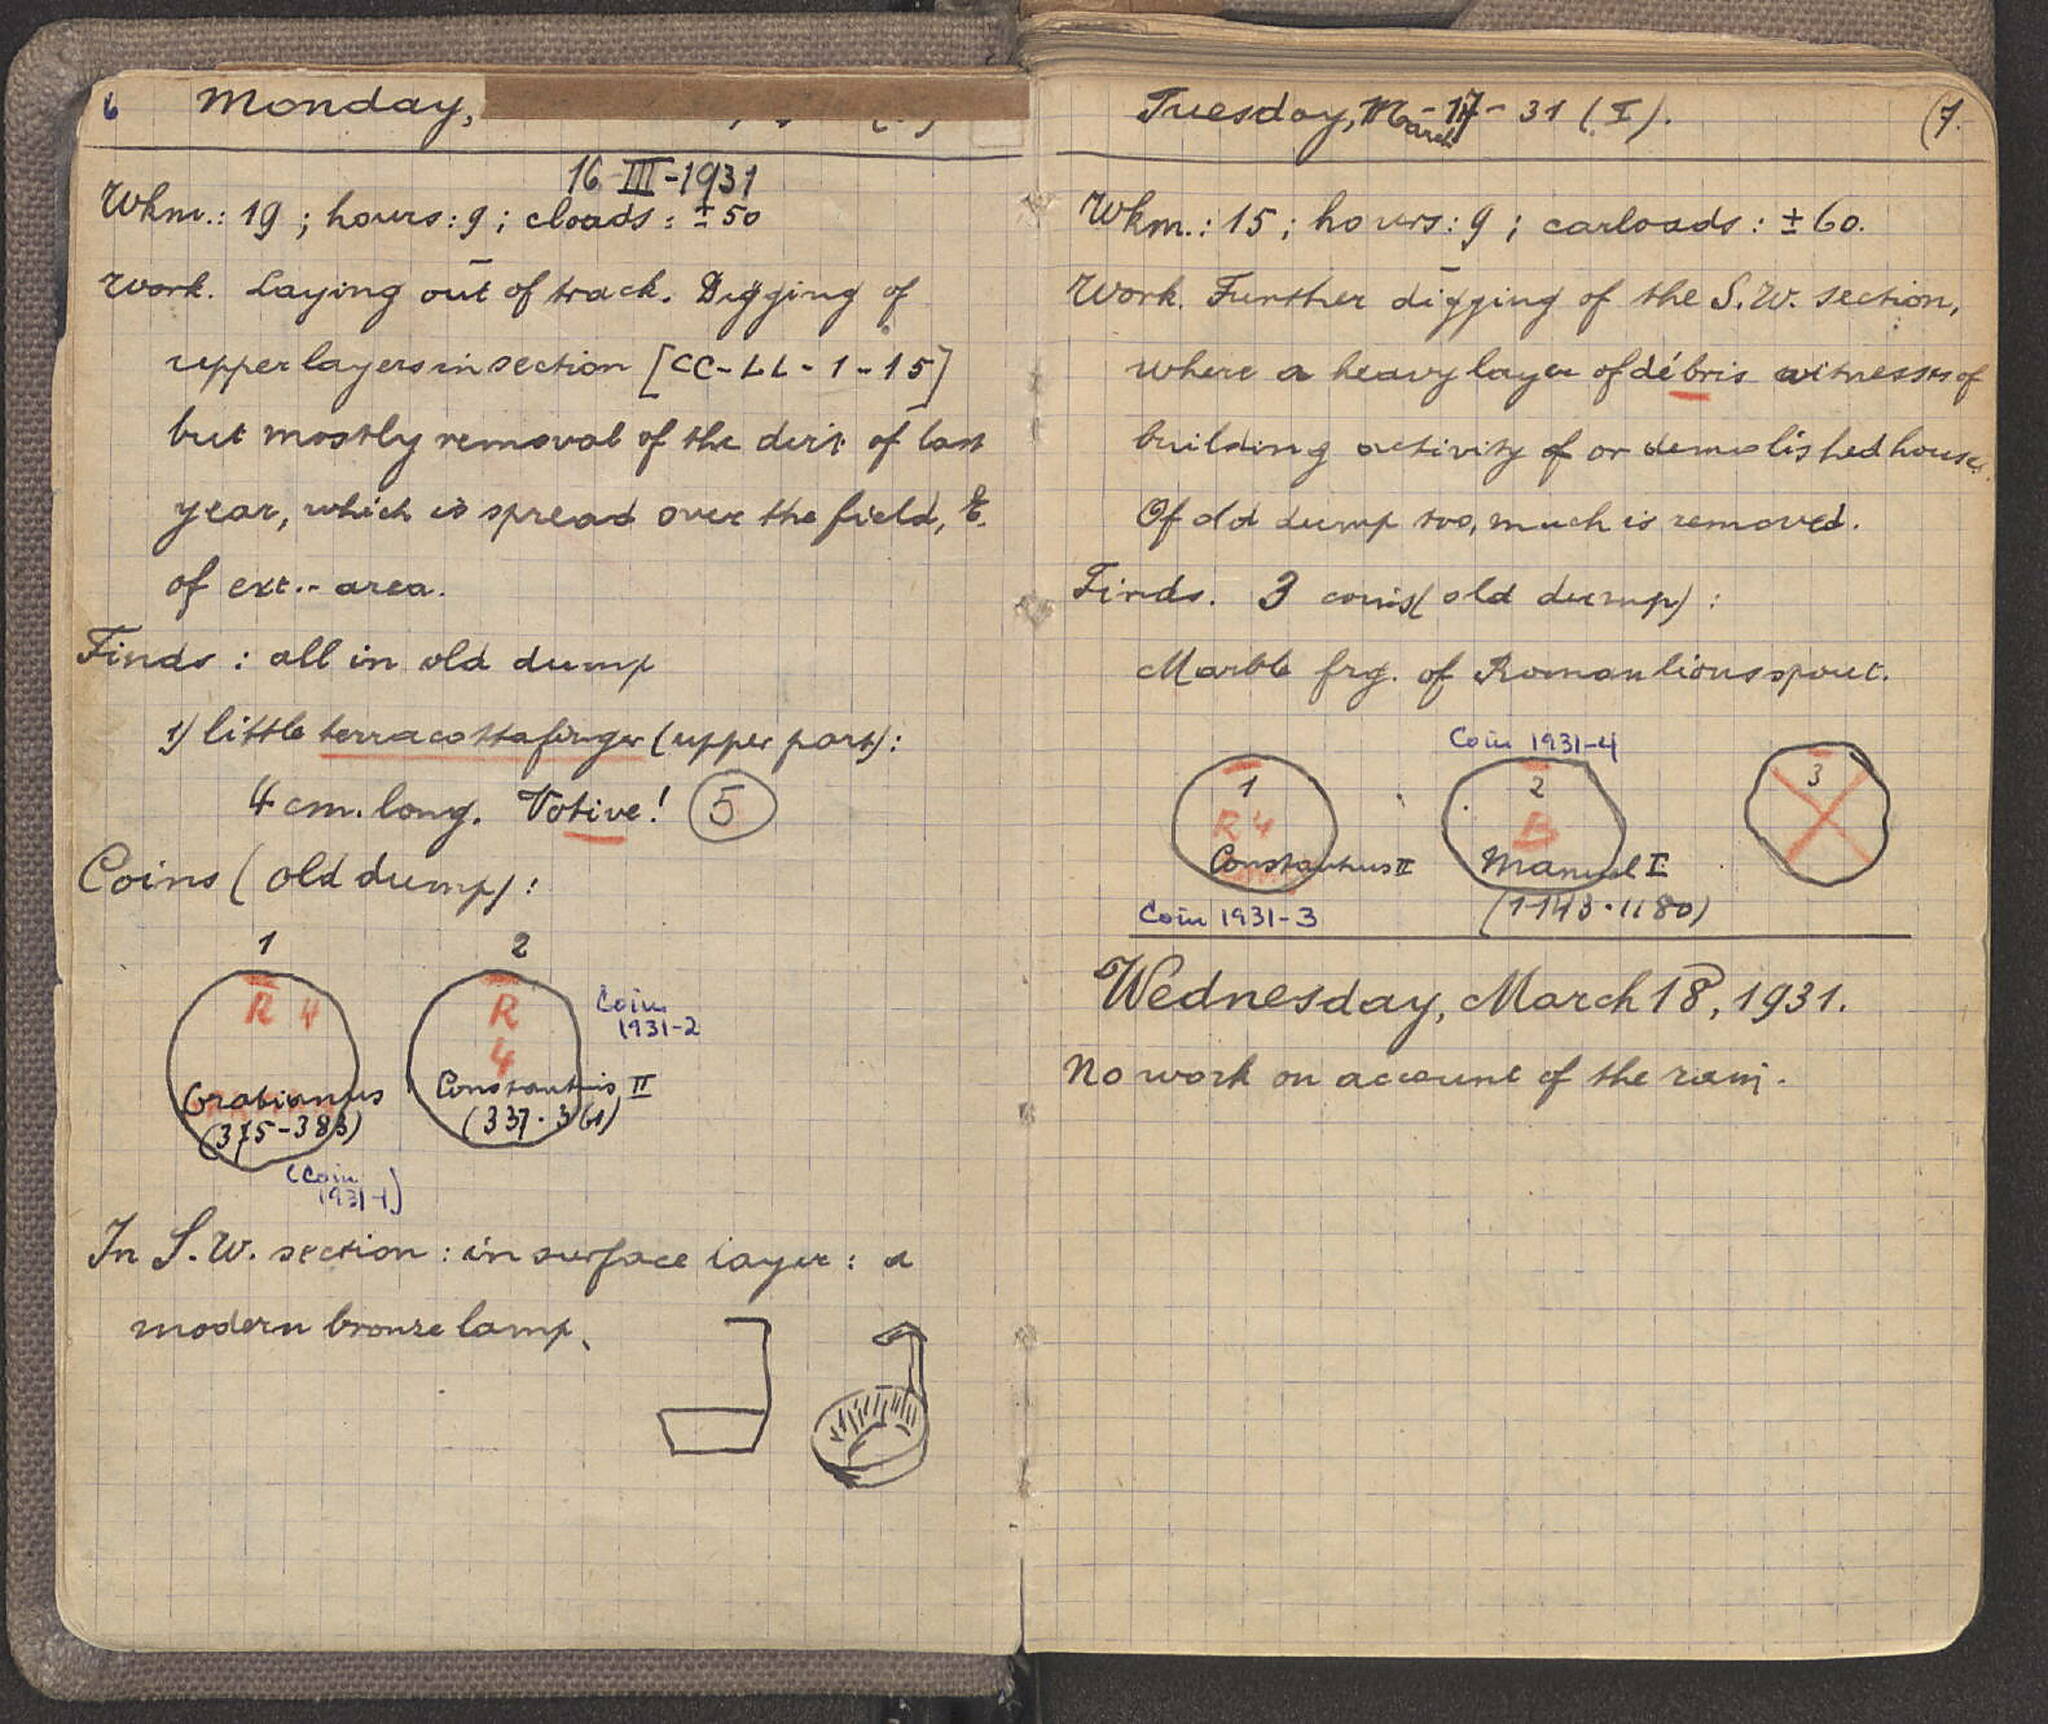 6 Monday,
16 III-1931
Wkm.: 19 ; hours: 9 ; cloads: ± 50
Work. Laying out of track. Digging of
upper layers in section [CC-LL-1-15]
but mostly removal of the dirt of last
year, which is spread over the field, E.
of ext.- area.
Finds : all in old dump
1) little terracotta finger (upper part):
4 cm. long. Votive! 5
Coins (old dump):
1 2
R 4
Gratianus
(375-383)
(Coin
1931-1)
R
4
Constantius II
(337-361)
Coin
1931-2
In S.W. section : in surface layer : a
modern bronze lamp.
Tuesday, March -17- 31 (I). (7.
Wkm.: 15 ; hours: 9 ; carloads: ± 60.
Work. Further digging of the S.W. section,
where a heavy layer of débris witnesses of
building activity of or demolished house.
Of old dump too, much is removed.
Finds. 3 coins (old dump) :
Marble frg. of Roman lionsspout.
1
R 4
Constantius II
Coin 1931-3
Coin 1931-4
2
B
Manuel I
(1143-1180)
3
Wednesday, March 18, 1931.
No work on account of the rain.